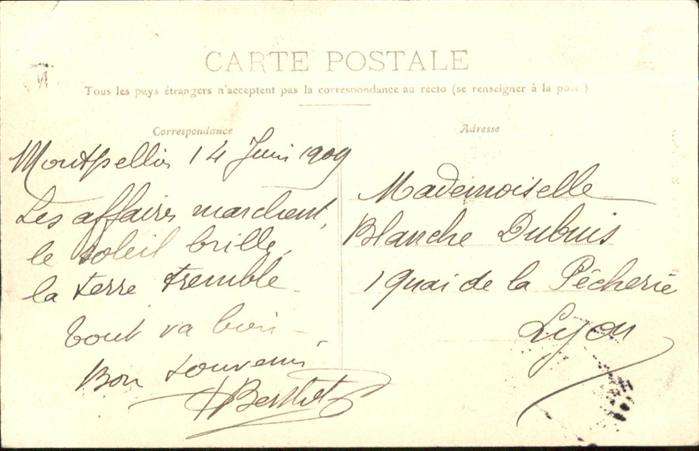 CARTE POSTALE
Tous les pays étrangers n'acceptent pas la correspondance au recto (se renseigner à la poste)
Correspondance
Montpellier 14 Juin 1909
Les affaires marchent,
le soleil brille,
la terre tremble
tout va bien -
Bon souvenir
Berthet
Adresse
Mademoiselle
Blanche Dubuis
1 quai de la Pêcherie
Lyon